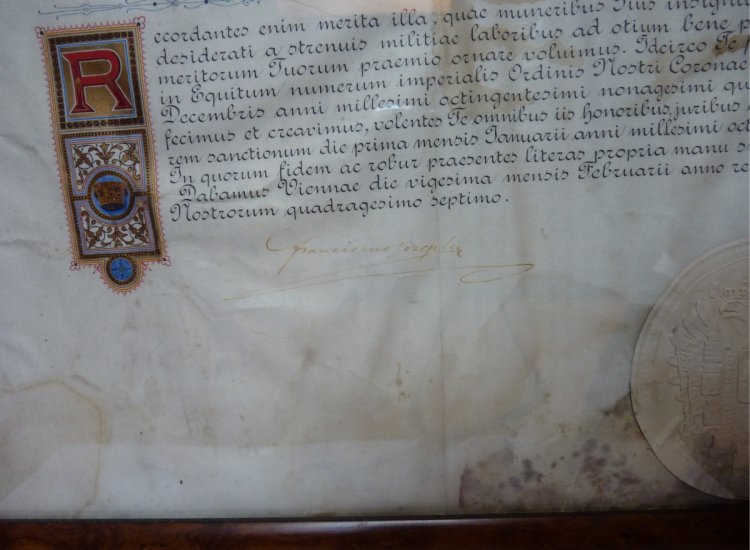 Recordantes enim merita illa, quae muneribus Tuis insigni
desiderati a strenuis militiae laboribus ad otium bene p
meritorum Tuorum praemio ornare voluimus. Idcirco Te
in Equitum numerum imperialis Ordinis Nostri Coronae
Decembris anni millesimi octingentesimi nonagesimi qu
fecimus et creavimus, volentes Te omnibus iis honoribus, juribus
rem sanctionum die prima mensis Januarii anni millesimi oct
In quorum fidem ac robur praesentes literas propria manu s
Dabamus Viennae die vigesima mensis Februarii anno re
Nostrorum quadragesimo septimo.